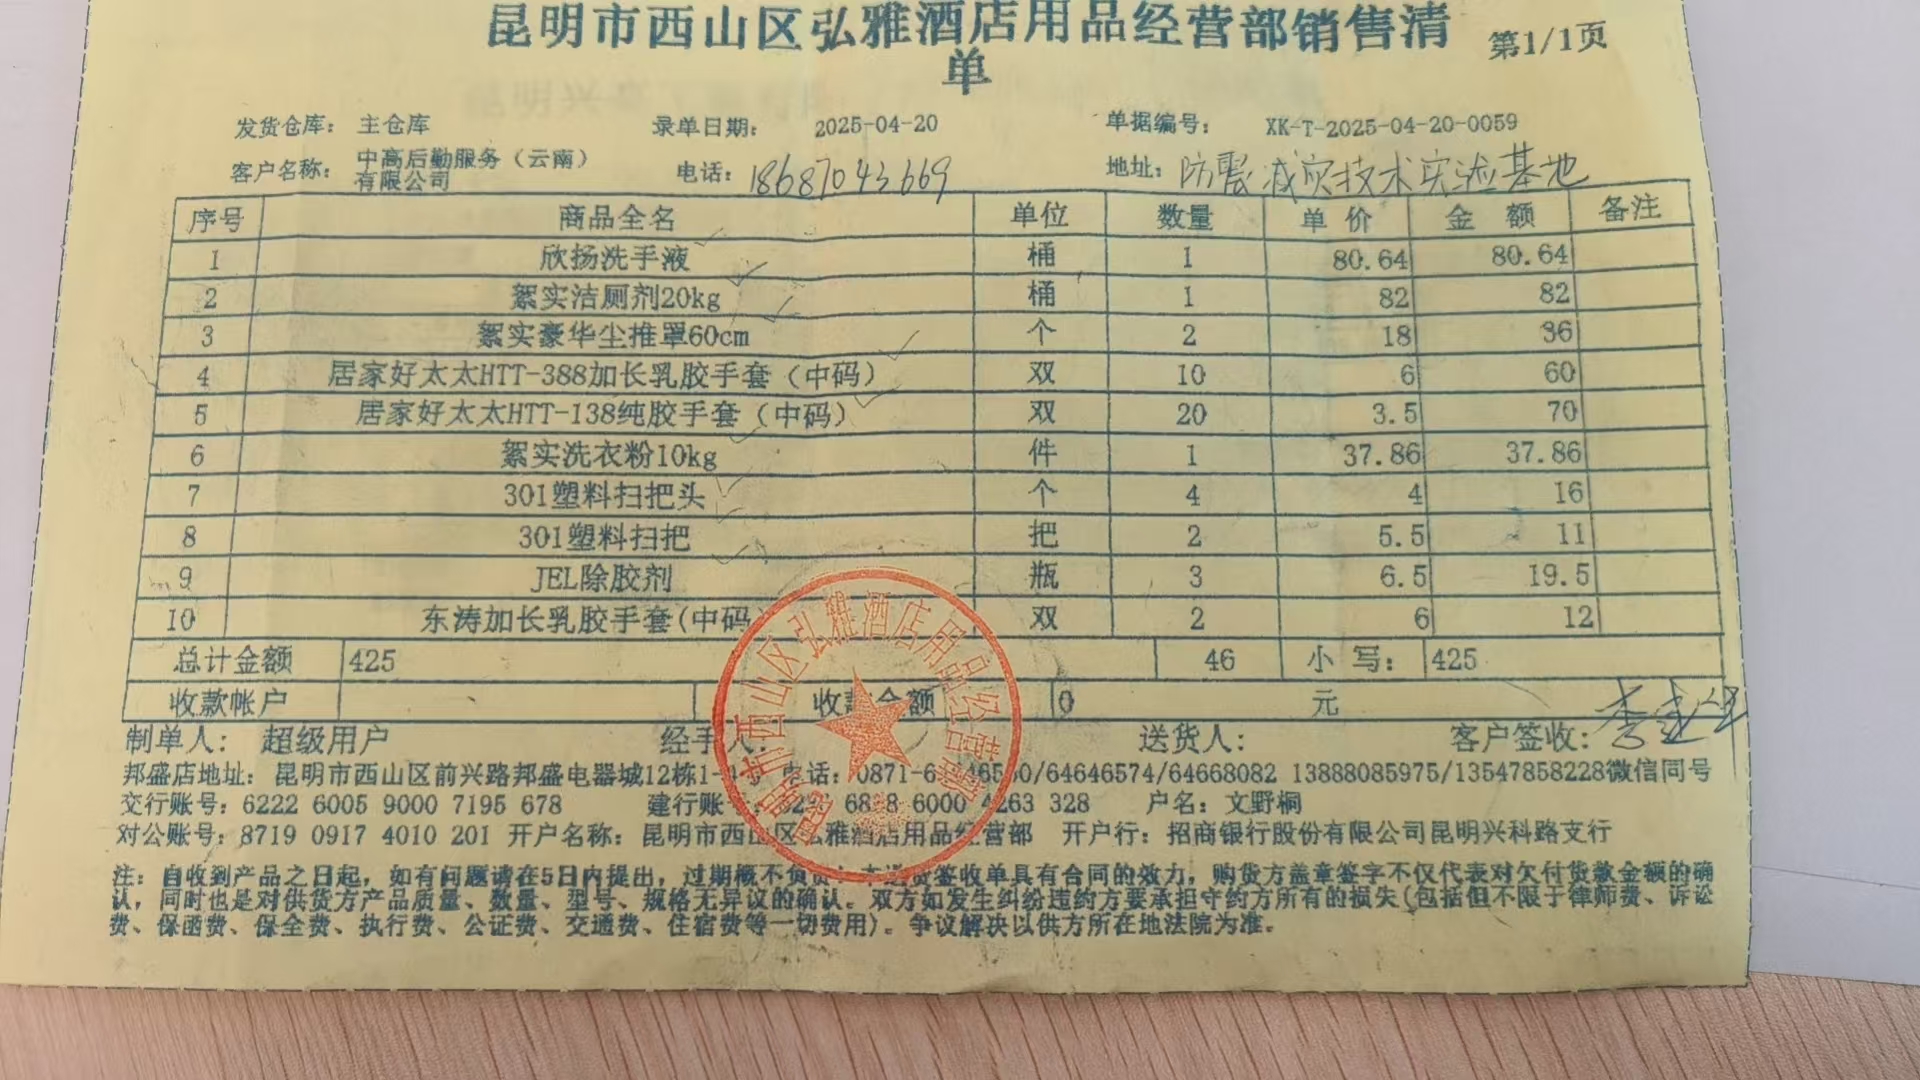 昆明市西山区弘雅酒店用品经营部销售清
单
第1/1页
发货仓库： 主仓库 录单日期： 2025-04-20 单据编号： XK-T-2025-04-20-0059
客户名称： 中高后勤服务（云南）有限公司 电话： 18687043669 地址： 防震减灾技术实验基地
序号 商品全名 单位 数量 单价 金额 备注
1 欣扬洗手液 桶 1 80.64 80.64
2 絮实洁厕剂20kg 桶 1 82 82
3 絮实豪华尘推罩60cm 个 2 18 36
4 居家好太太HTT-388加长乳胶手套（中码） 双 10 6 60
5 居家好太太HTT-138纯胶手套（中码） 双 20 3.5 70
6 絮实洗衣粉10kg 件 1 37.86 37.86
7 301塑料扫把头 个 4 4 16
8 301塑料扫把 把 2 5.5 11
9 JEL除胶剂 瓶 3 6.5 19.5
10 东涛加长乳胶手套(中码 双 2 6 12
总计金额 425 46 小写： 425
收款帐户 收款金额 0 元
制单人： 超级用户 经手人： 送货人： 客户签收：
邦盛店地址：昆明市西山区前兴路邦盛电器城12栋1- 电话： /64646574/64668082 13888085975/13547858228微信同号
交行账号：6222 6005 9000 7195 678 建行账号： 6000 4263 328 户名：文野桐
对公账号：8719 0917 4010 201 开户名称：昆明市西山区弘雅酒店用品经营部 开户行：招商银行股份有限公司昆明兴科路支行
注：自收到产品之日起，如有问题请在5日内提出，过期概不负责。本送货签收单具有合同的效力，购货方盖章签字不仅代表对欠付货款金额的确
认，同时也是对供货方产品质量、数量、型号、规格无异议的确认。双方如发生纠纷违约方要承担守约方所有的损失(包括但不限于律师费、诉讼
费、保函费、保全费、执行费、公证费、交通费、住宿费等一切费用)。争议解决以供方所在地法院为准。
昆明市西山区弘雅酒店用品经营部